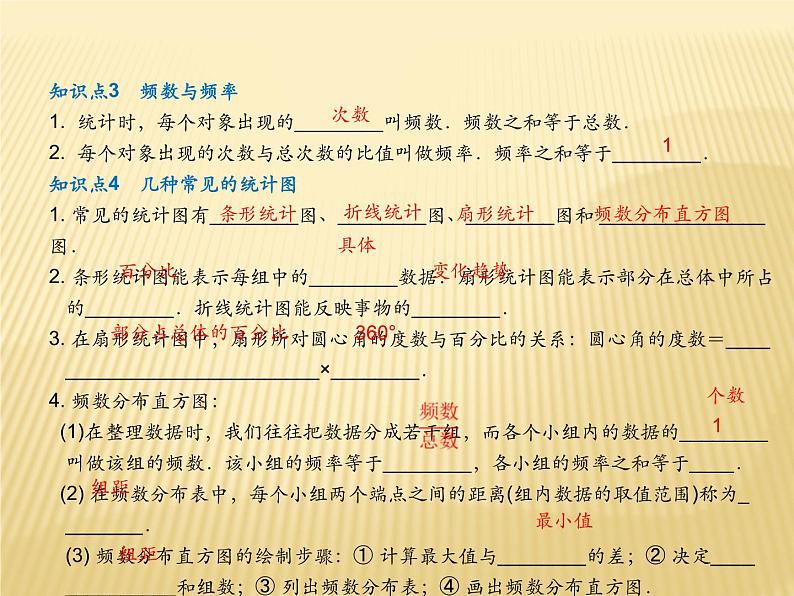 知识点3 频数与频率
1. 统计时，每个对象出现的________叫频数．频数之和等于总数．
次数
2. 每个对象出现的次数与总次数的比值叫做频率．频率之和等于________．
1
知识点4 几种常见的统计图
1. 常见的统计图有________图、________图、________图和______________
条形统计 折线统计 扇形统计 频数分布直方图
图．
具体
2. 条形统计图能表示每组中的________数据．扇形统计图能表示部分在总体中所占
百分比 变化趋势
的________．折线统计图能反映事物的________．
部分占总体的百分比 360°
3. 在扇形统计图中，扇形所对圆心角的度数与百分比的关系：圆心角的度数＝____
______________________×________．
4. 频数分布直方图：
频数
总数
个数
(1)在整理数据时，我们往往把数据分成若干组，而各个小组内的数据的________
1
叫做该组的频数．该小组的频率等于________，各小组的频率之和等于____．
组距
(2) 在频数分布表中，每个小组两个端点之间的距离(组内数据的取值范围)称为_
_______．
最小值
(3) 频数分布直方图的绘制步骤：① 计算最大值与________的差；② 决定____
组距
__________和组数；③ 列出频数分布表；④ 画出频数分布直方图．